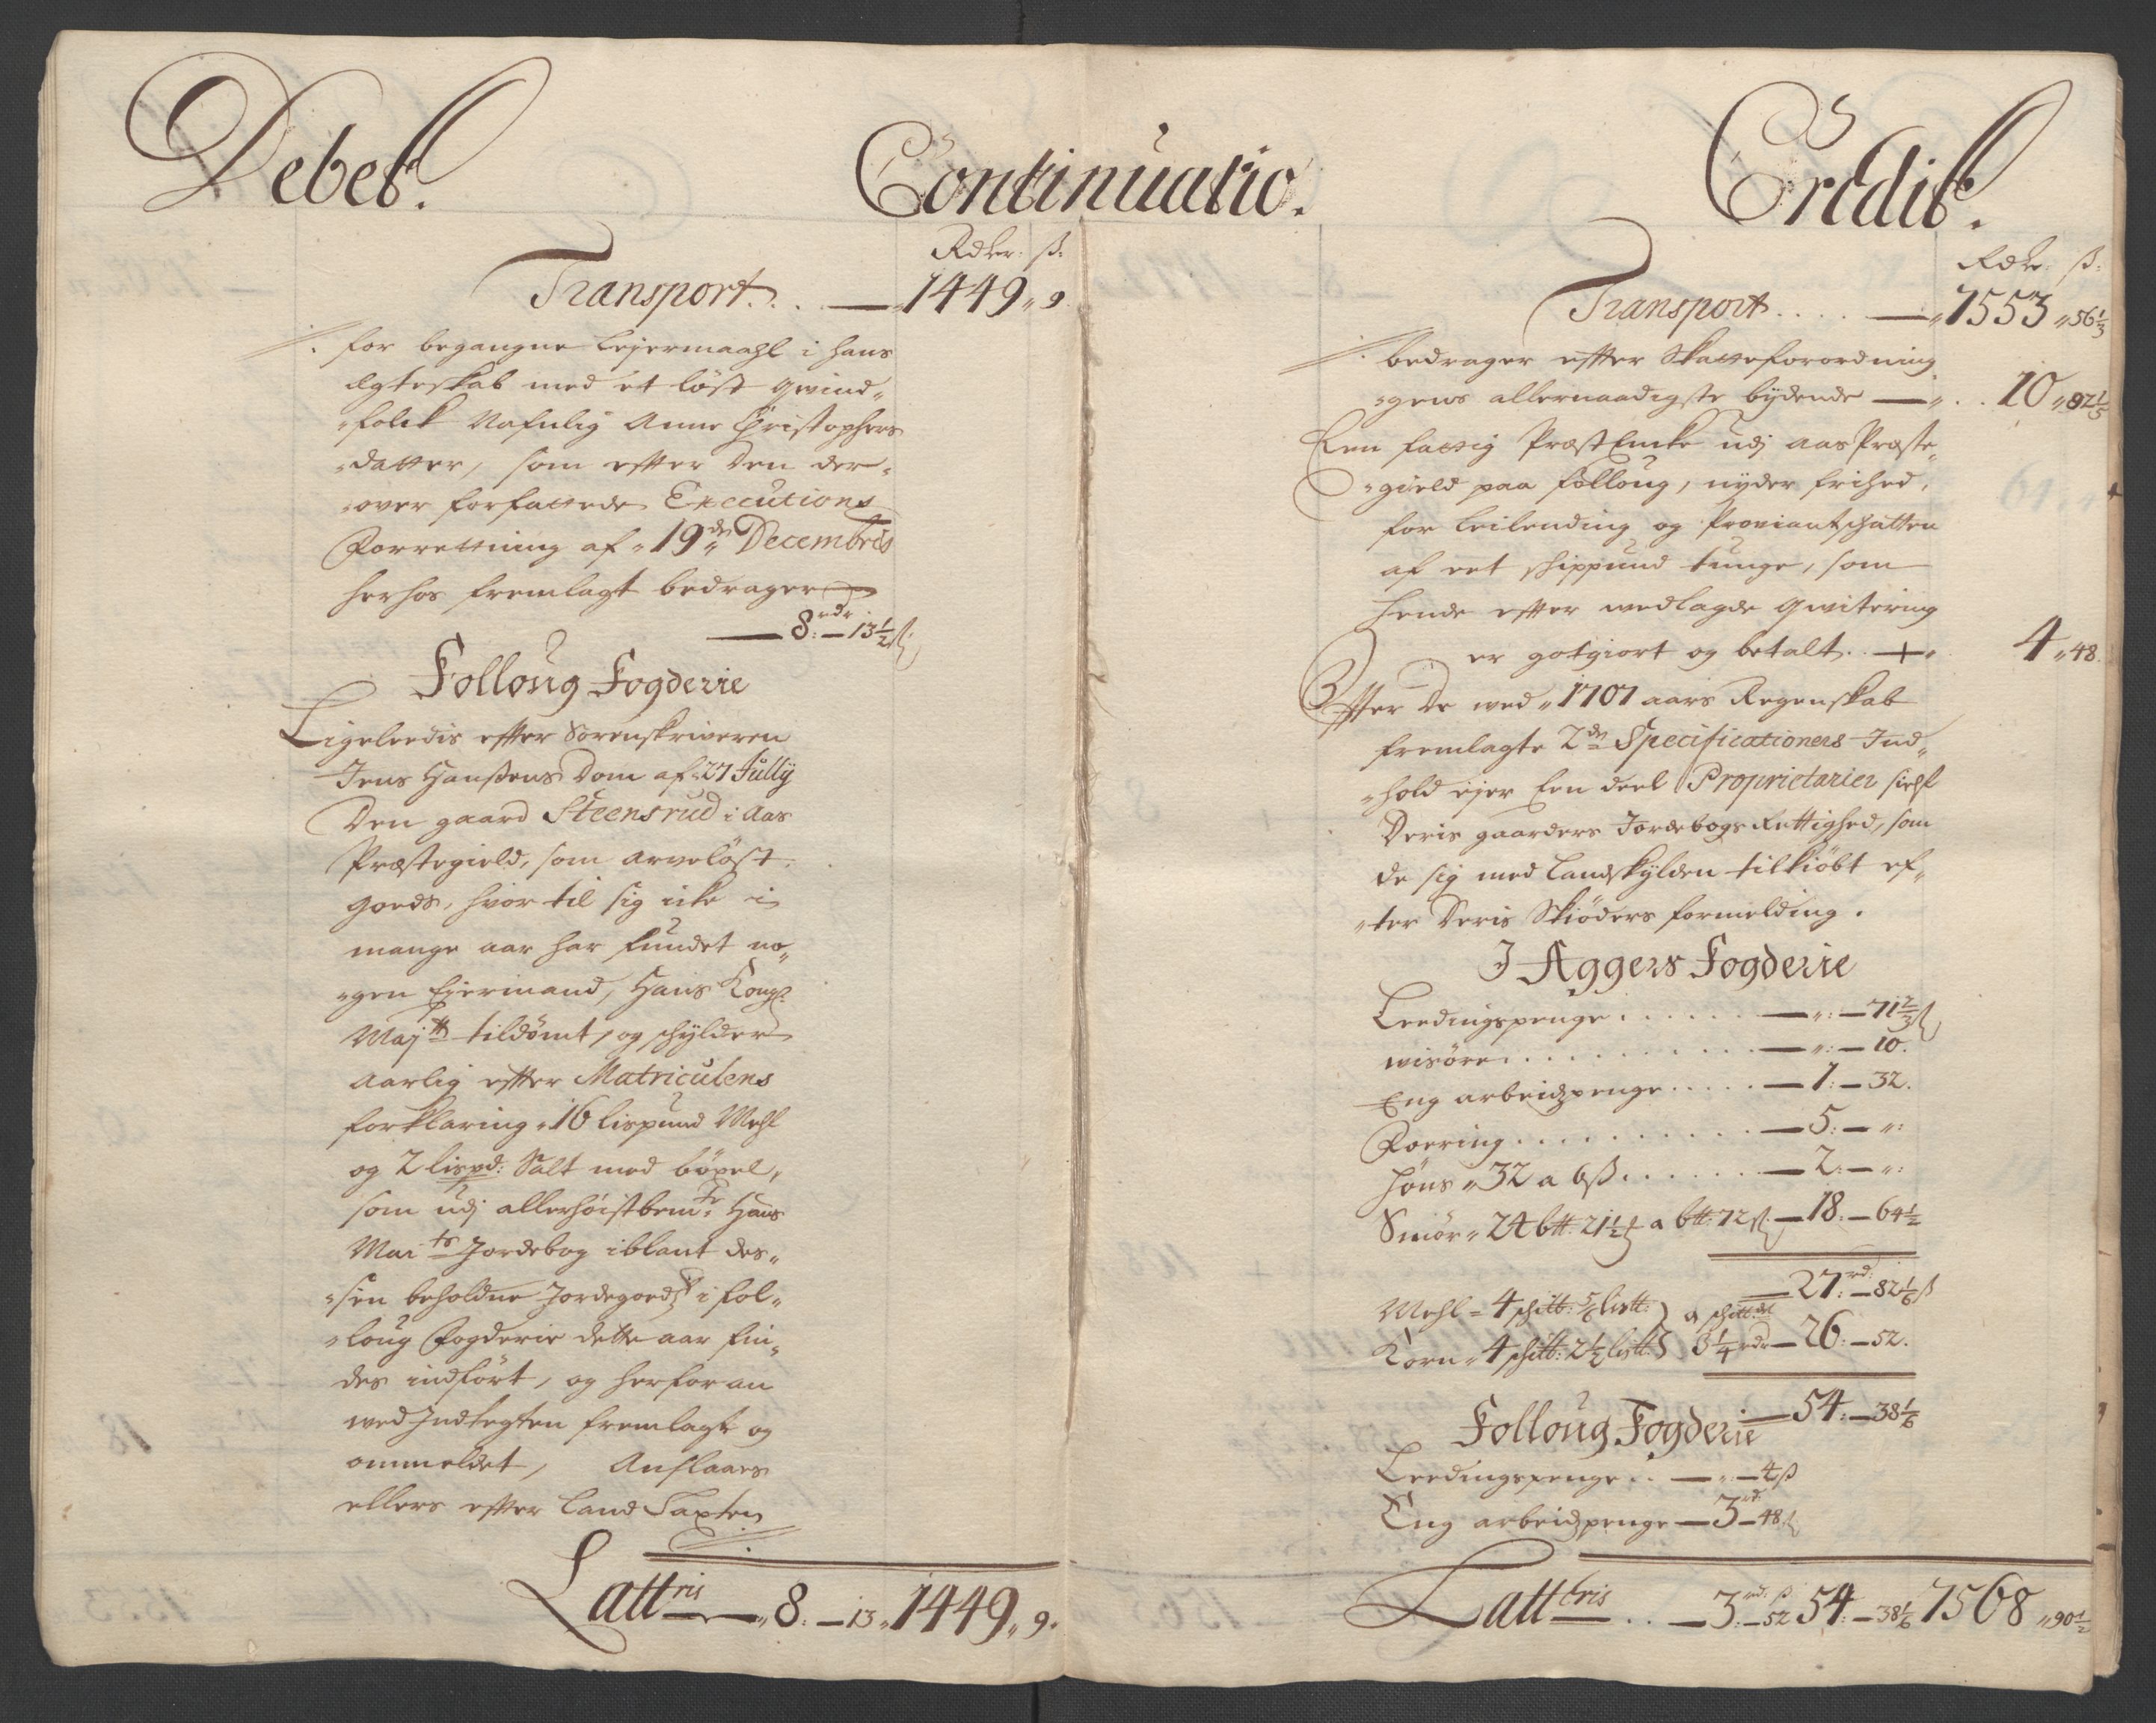 Debet.
Continuatio.
Rdler: ß:
Transport. . . — 1449 „ 9.
for begangne Lejermaahl i hans
ægteskab med et löst qwind„
„folck Nafnlig Anne Christophers
„datter, som efter den der„
„over forfattede Executions
Forretning af „19de Decembris
herhos fremlagt bedrager
— 8rdr: — 13½ß:
Folloug Fogderie
Ligeleedis effter Sorenskriveren
Jens Hanssens Dom af 27 Jully
Den gaard Steensrud i Aas
Præstegield, som arvelöst
goeds, hvor til sig icke i
mange aar har fundet no„
„gen Ejermand, Hans Kongl:
Majtt tildömt, og schylder
aarlig effter Matriculens
forklaring „16 lispund Mehl
og 2 lispd: Salt med böxel,
som udj allerhöistbemte Hans
Maits Jordebog iblant des„
„sen beholdne Jordegoeds i fol„
„loug Fogderie dette aar fin„
des indfört, og herforan
ved Indtegten fremlagt og
ommeldet, Anslaaes
ellers efter Land Taxten
Lattris — „8: — 13 „ 1449 „ 9.
Credit.
Rdlr: ß:
Transport . . . . — „ 1553 „ 56⅓
bedrager effter Skatteforordning
„gens allernaadigste bydende — „ . . 10 „ 82⅕
Een fattig Præst Encke udj Aas Præste„
„gield paa folloug, nyder frihed,
for Leilending og Proviantschatten
af eet schippund tunge, som
hende effter wedlagde qwitering
er gotgiort og betalt . . 4 „ 48.
Effter de wed „1701 aars Regenskab
fremlagte 2de Specificationers Ind„
„hold ejer Een deel Proprietarier sielf
Deris gaarders Jordebogs Rettighed, som
de sig med Landskylden tilkiöbt ef„
„ter Deris Skiöders formelding.
I Aggers Fogderie
Leedingspenge . . . . . . — „: — 71⅔ß
wisöre . . . . . . . . . . — „: — 10.
Eng arbeidzpenge . . . . . — 1: — 32.
Foering . . . . . . . . . . — 5: — „:
Höns „32 a 6ß . . . . . . — 2: — „:
Smör „24 btt: 21½ a btt: 72ß — 18: — 64½
— 27rd: — 82⅙ß
Mehl „4 schitt: ⅚ listt: a schitt:det
Korn „4 schitt: 2½ listt: 3¼ rdr — 26: — 52.
— 54: — 38⅙
Folloug Fogderie
Leedingspenge . . — „: — 4ß
Eng arbeidzpenge — 3rd: — 48ß
Latttris . . — 3rd: — 52ß 54: — 38⅙ 1568 „ 90½